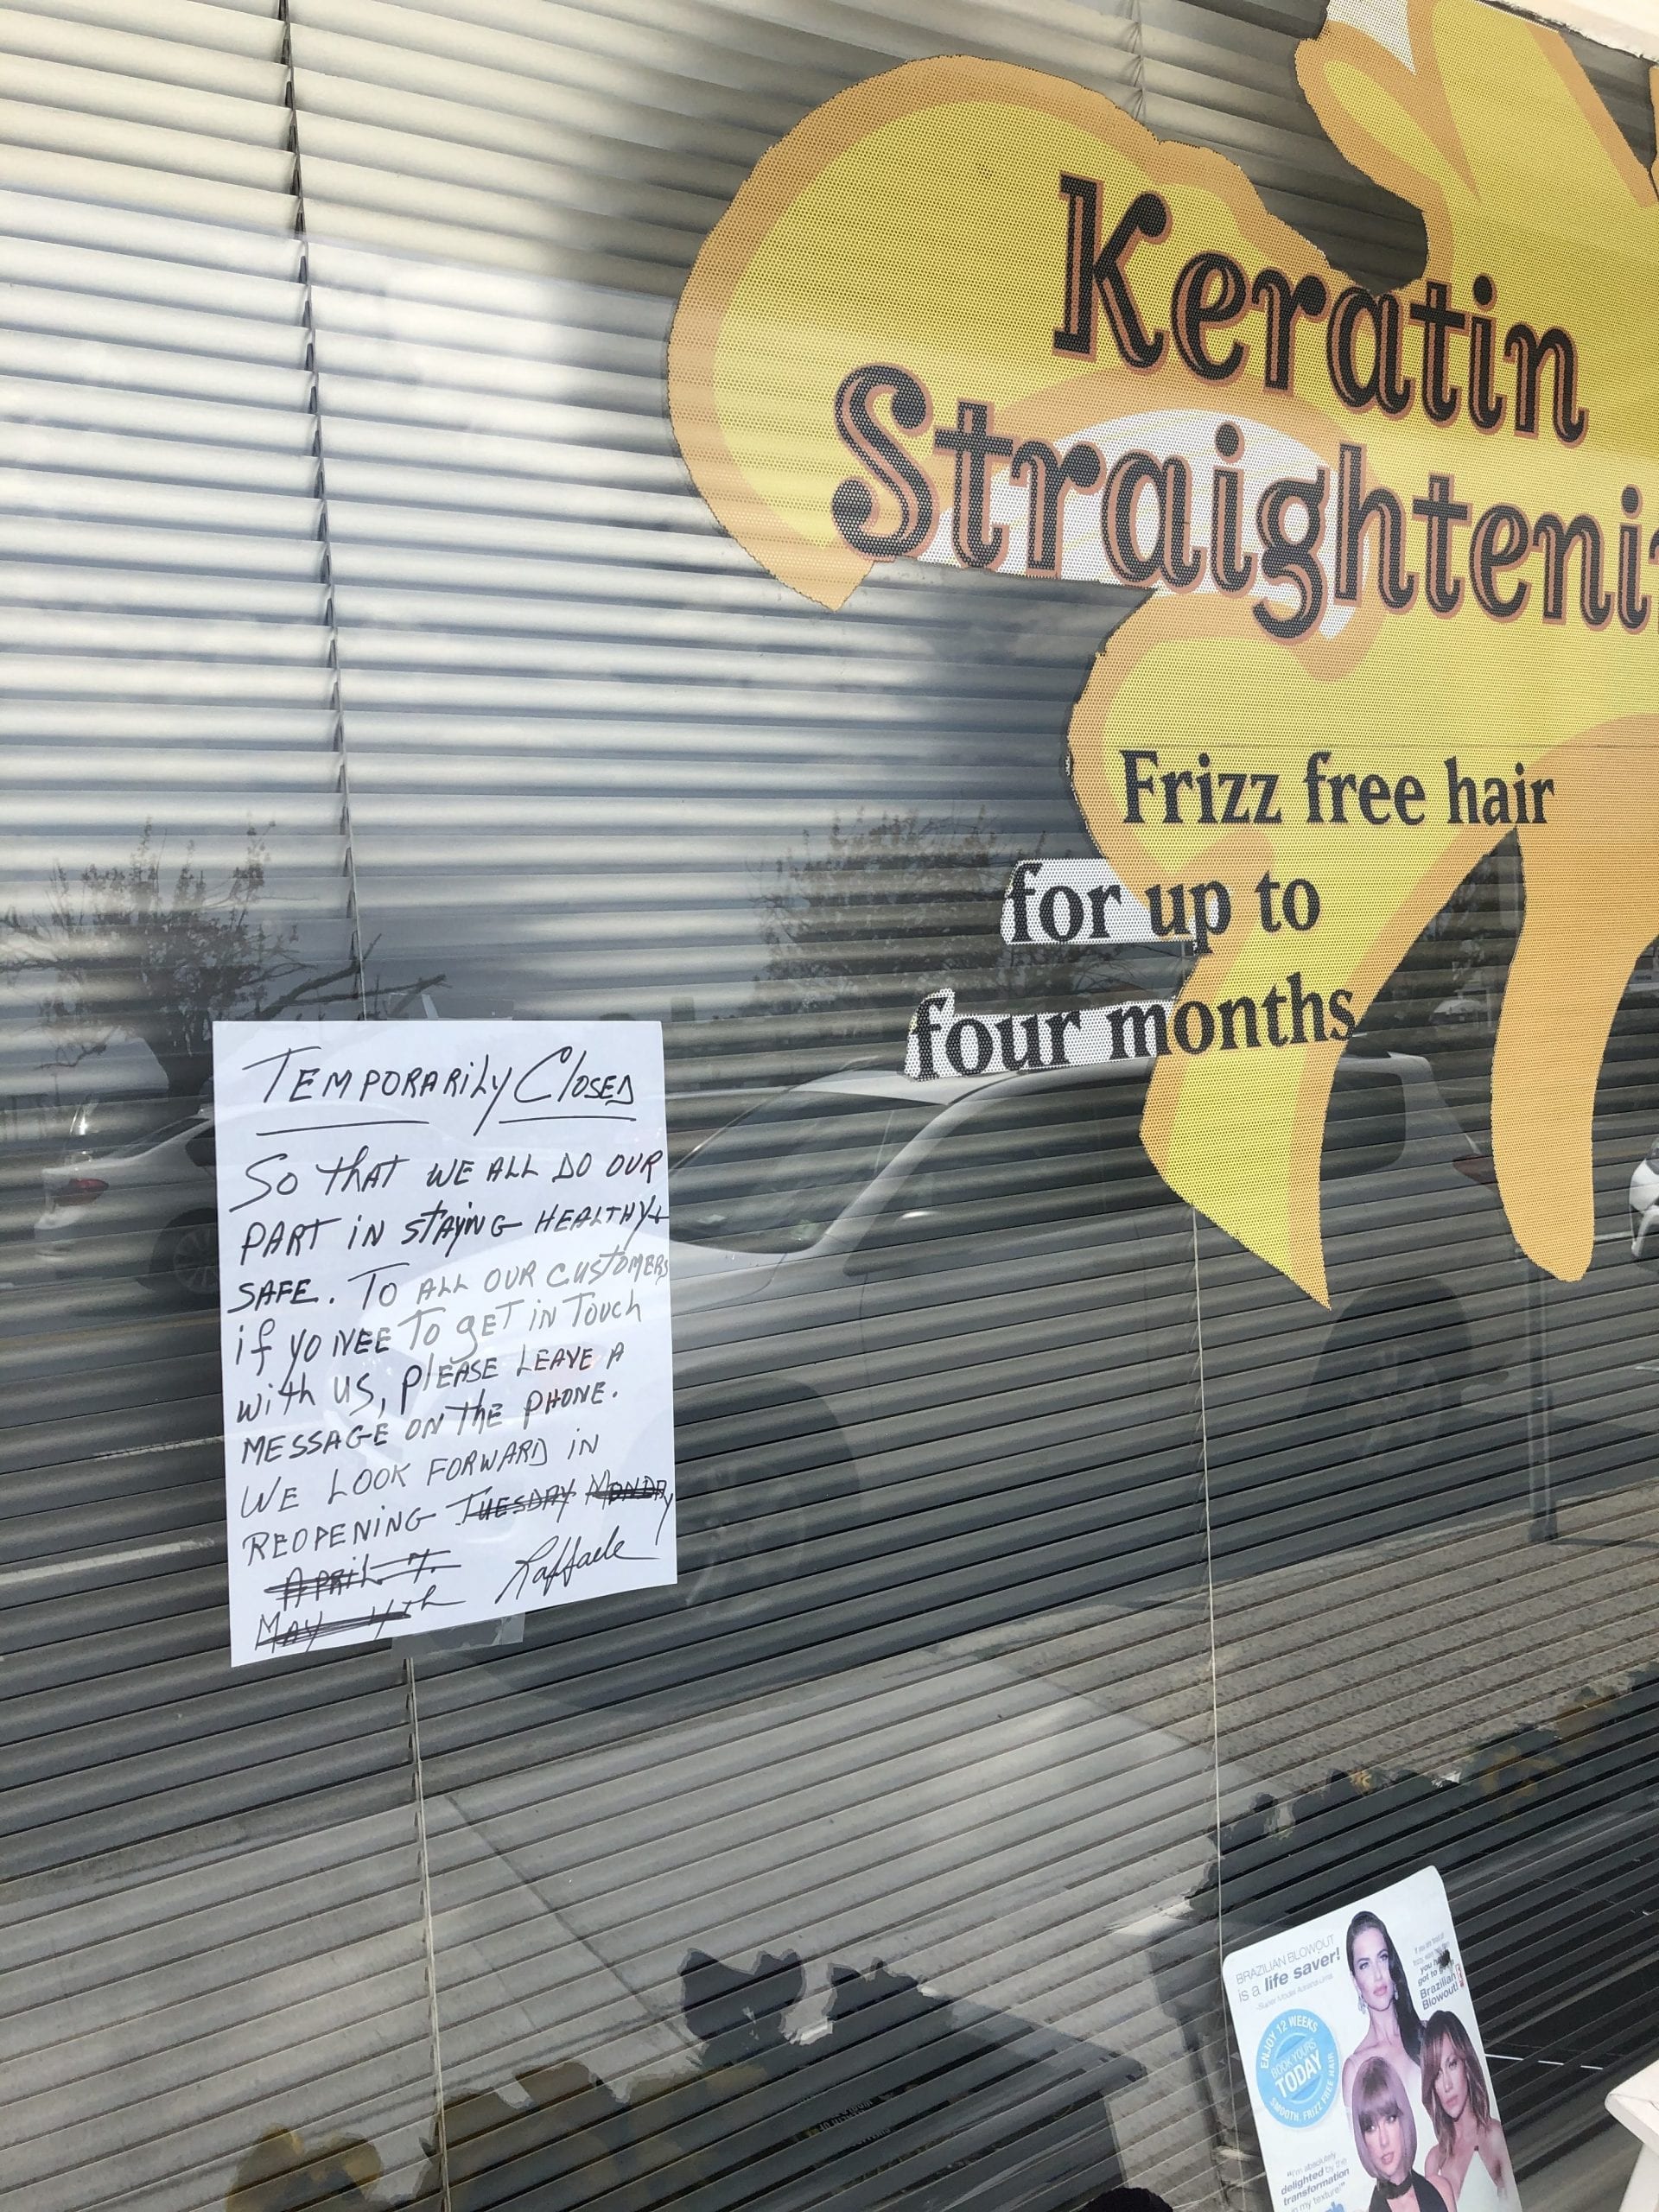 Keratin
Straighteni
Frizz free hair
for up to
four months
TEMPORARILY CLOSED
SO THAT WE ALL DO OUR
PART IN STAYING HEALTHY +
SAFE. TO ALL OUR CUSTOMERS
if YO NEE TO GET IN TOUCH
with US, PLEASE LEAVE A
MESSAGE ON THE PHONE.
WE LOOK FORWARD IN
REOPENING TUESDAY MONDAY
APRIL 7.
MAY 4th
Raffaele
BRAZILIAN BLOWOUT
is a life saver!
you've
got to
Brazilian
Blowout!
ENJOY 12 WEEKS
BOOK YOURS
TODAY
SMOOTH, FRIZZ FREE HAIR
"I'm absolutely
delighted by the
transformation
in my texture!"